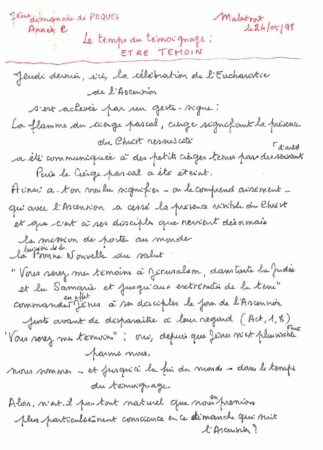 7ème dimanche de PAQUES
Année C
Malestroit
le 24/05/98
Le temps du témoignage :
ETRE TEMOIN
Jeudi dernier, ici, la célébration de l'Eucharistie
de l'Ascension
s'est achevée par un geste-signe :
La flamme du cierge pascal, cierge signifiant la présence
du Christ ressuscité
a été communiquée à des petits cierges tenus par des servants
d'autel
Puis le Cierge pascal a été éteint.
Ainsi a-t-on voulu signifier - on le comprend aisément -
qu'avec l'Ascension a cessé la présence visible du Christ
et que c'est à ses disciples que revient désormais
la mission de porter au monde
lumière de la
la Bonne Nouvelle du salut
"Vous serez mes témoins à Jérusalem, dans toute la Judée
et la Samarie et jusqu'aux extrémités de la terre"
en effet
commande Jésus à ses disciples le jour de l'Ascension
juste avant de disparaître à leur regard (Act, 1, 8)
"Vous serez mes témoins" : oui, depuis que Jésus n'est plus visible
parmi nous,
nous sommes - et jusqu'à la fin du monde - dans le temps
du témoignage.
Alors, n'est-il pas tout naturel que nous en prenions
plus particulièrement conscience en ce dimanche qui suit
l'Ascension ?